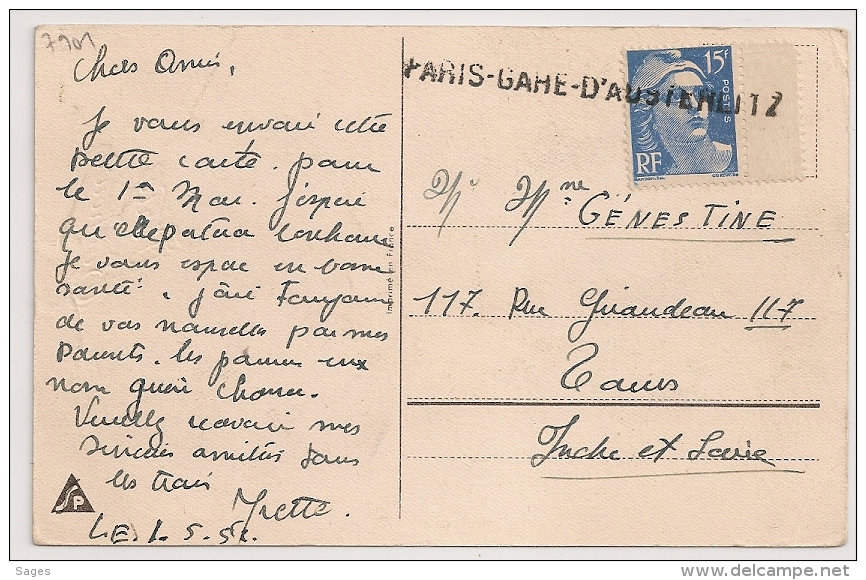 7901
Chers Amis,
Je vous envoie cette
petite carte pour
le 1er Mai. J'espère
qu'elle
Je vous espère en bonne
santé. J'ai toujours
de vos nouvelles par mes
Parents. Les pauvres eux
non guère chance.
Veuillez recevoir mes
sincères amitiés tous
les trois
Yvette.
LE 1.5.51.
SP
Imprimé en France
PARIS-GARE-D'AUSTERLITZ
15F
POSTES
RF
Mr Mme GÉNESTINE
117. Rue Giraudeau 117
Tours
Indre et Loire
Sages
delcampe.net